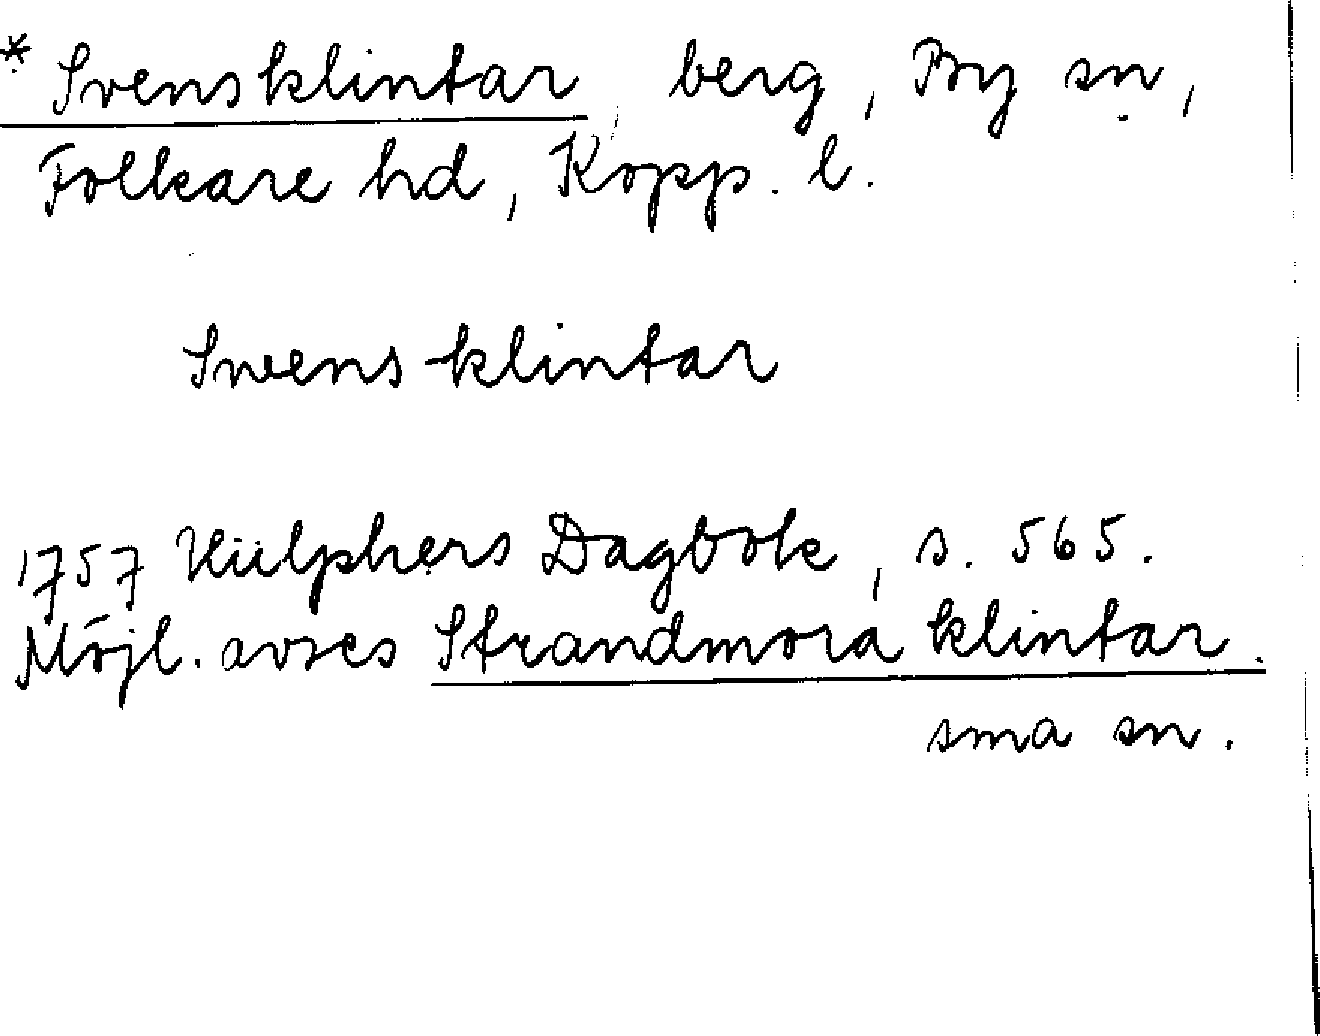 * Svensklintar, berg, By sn,
Folkare hd, Kopp. l.
Swens-klintar
1757 Hülphers Dagbok, s. 565.
Möjl. avses Strandmora klintar.
sma sn.